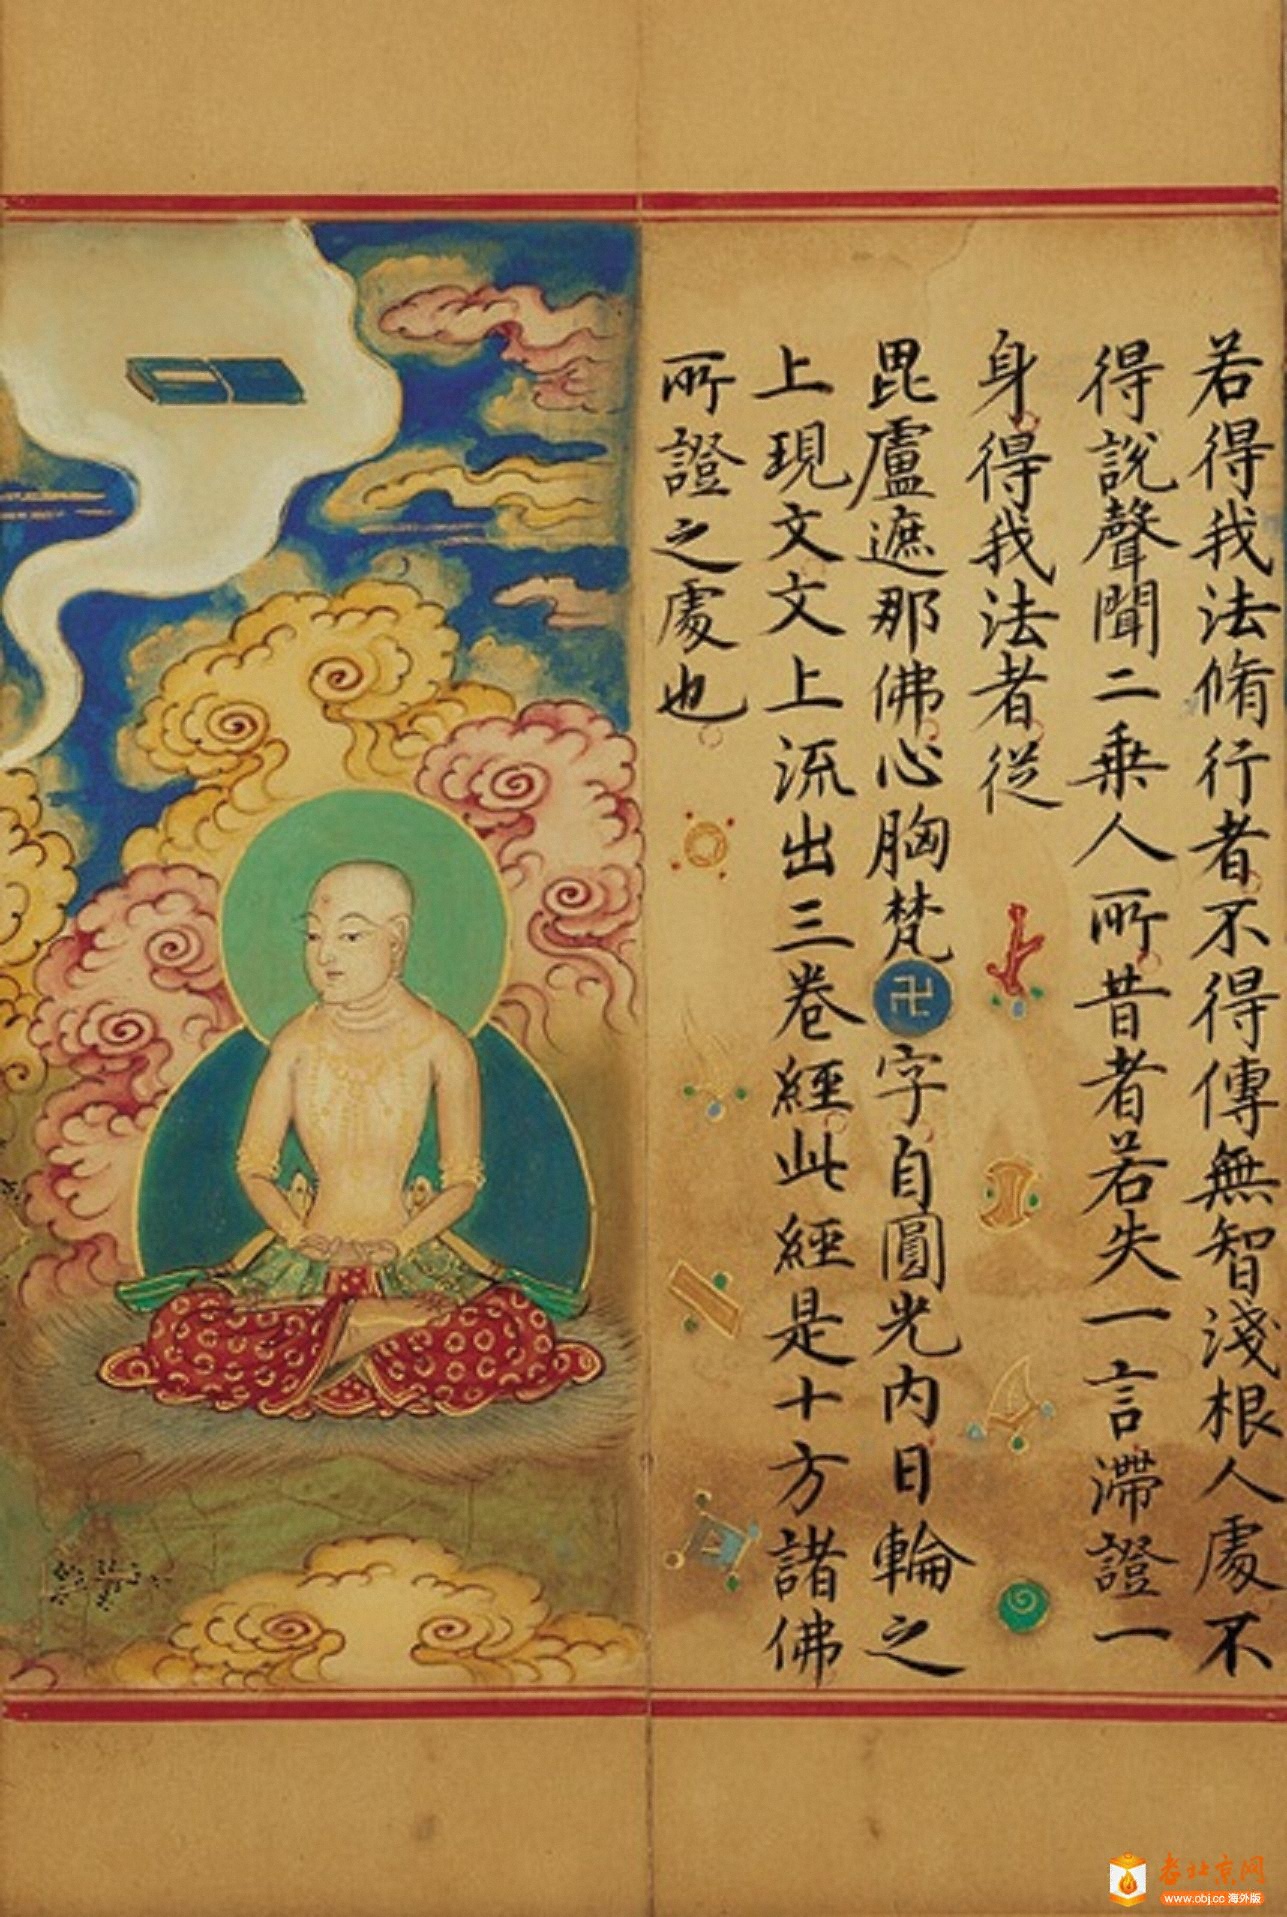 若得我法脩行者不得傳無智淺根人處不
得說聲聞二乘人所昔者若失一言滯證一
身得我法者從
毘盧遮那佛心胸梵卍字自圓光內日輪之
上現文文上流出三卷經此經是十方諸佛
所證之處也
老北京网
www.obj.cc 海外版